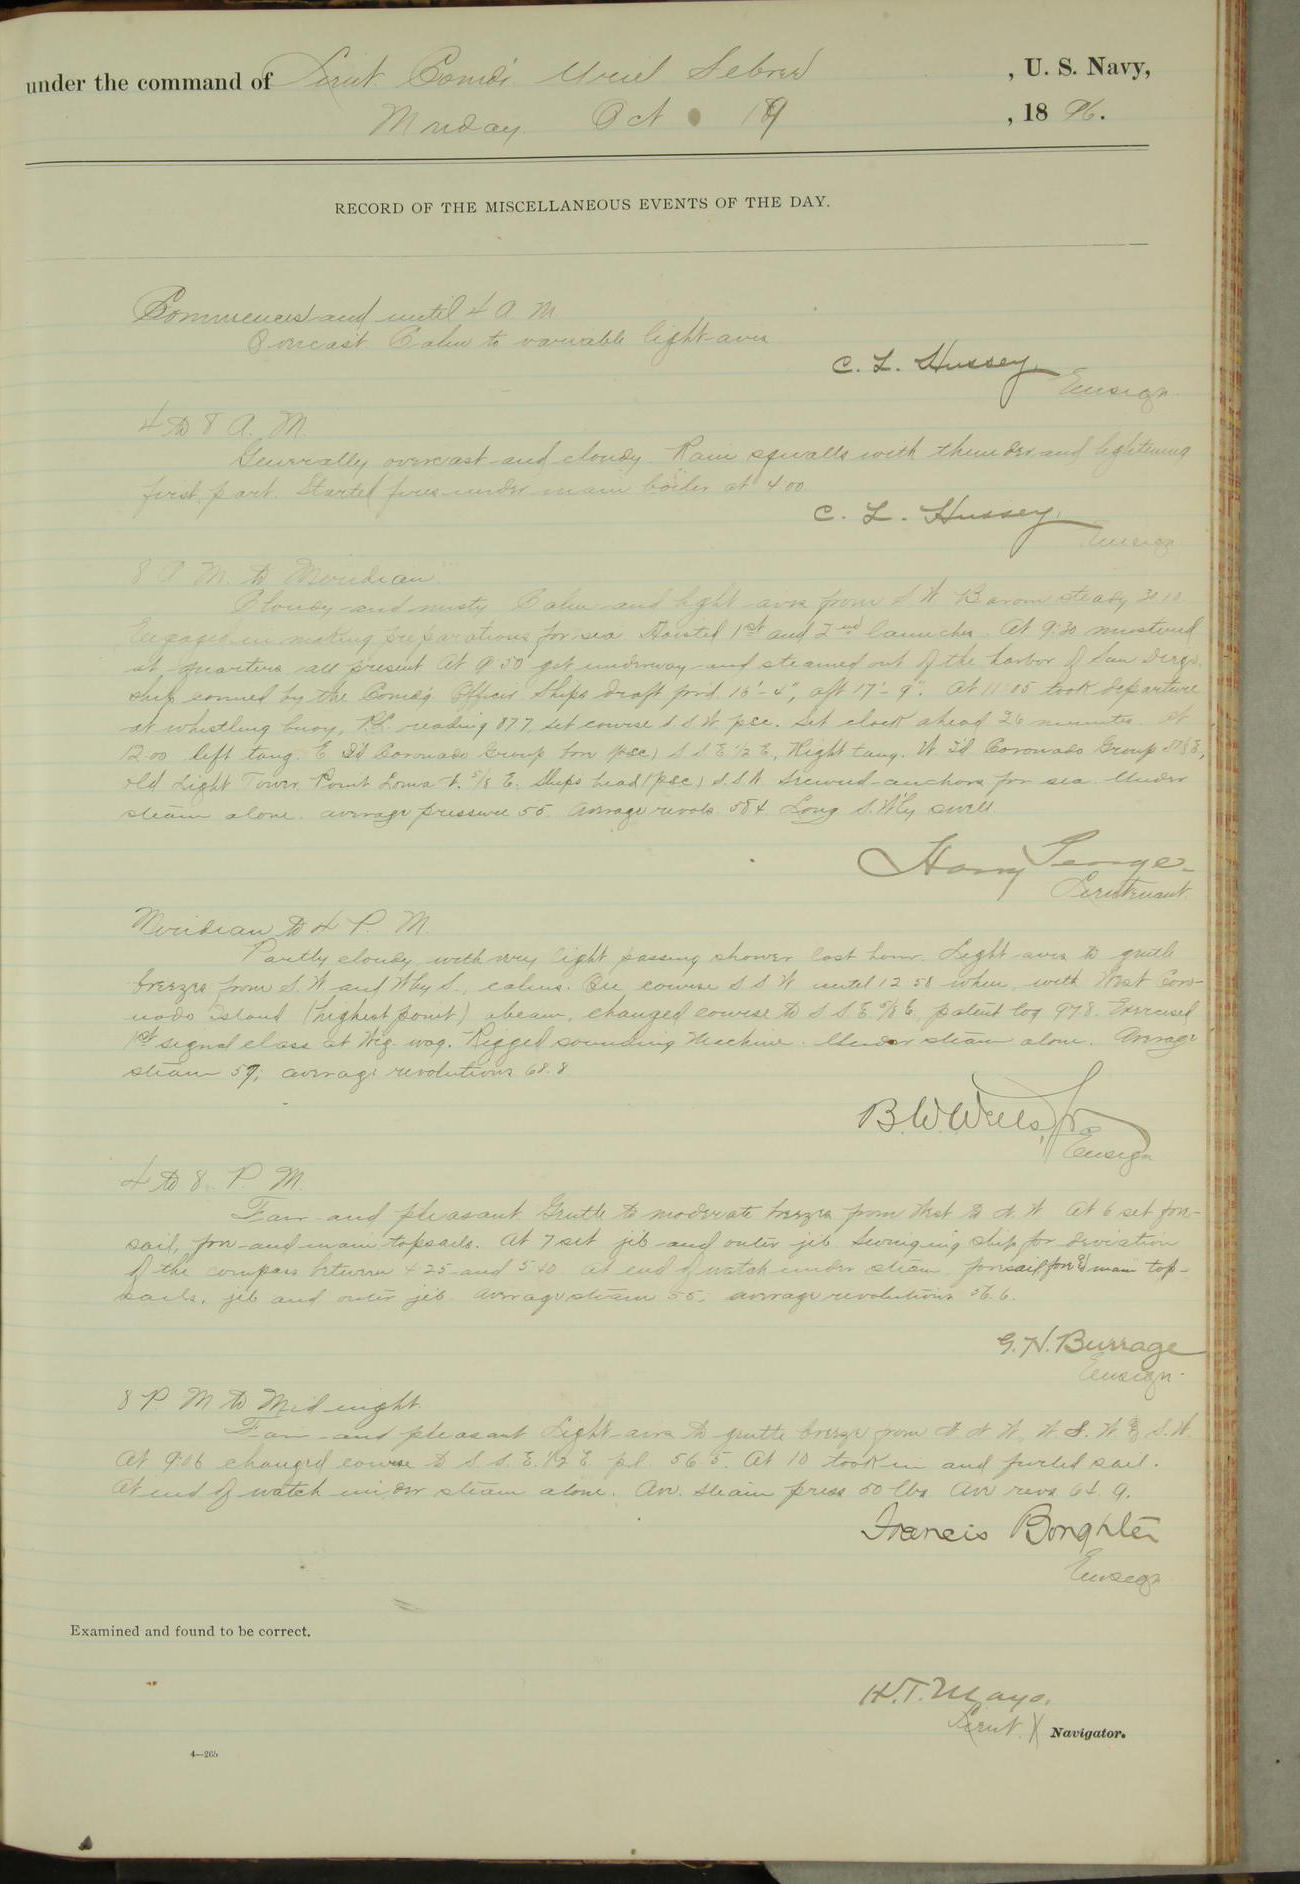 under the command of Lieut Comd'r Uriel Sebree , U. S. Navy,
Monday Oct 19 , 18 96.
RECORD OF THE MISCELLANEOUS EVENTS OF THE DAY.
Commences and until 4 A M
Overcast Calm to variable light airs
C. L. Hussey
Ensign
4 to 8 A. M.
Generally overcast and cloudy Rain squalls with thunder and lightening
first part. Started fires under main boiler at 4 00
C. L. Hussey
Ensign
8 A M. to Meridian
Cloudy and misty Calm and light airs from S W Barom steady 30 10
Engaged in making preparations for sea Hoisted 1st and 2nd launches. At 9:30 mustered
at quarters all present At 9 50 got underway and steamed out of the harbor of San Diego,
ship conned by the Comd'g Officer Ships draft for'd 16'-4", aft 17'-9". At 11:05 took departure
at whistling buoy, P.L. reading 87.7, set course S S W psc. set clock ahead 26 minutes At
12.00 left tang. E I'd Coronado Group bore (psc) S S E 1/2 E, Right tang. W I'd Coronado Group
old Light Tower Point Loma N. 5/8 E. Ships head (psc) S.S.W Secured anchors for sea Under
steam alone. average pressure 55 Average revols. 58 4 Long S.W'ly swell.
Harry George
Lieutenant.
Meridian to 4 P. M.
Partly cloudy with very light passing shower last hour. Light airs to gentle
breezes from S. W and W by S., calms. On course S S W until 12 58 when, with West Coro-
nado Island (highest point) abeam, changed course to S S E 5/8 E, patent log 97.8. Exercised
1st signal class at Wig-wag. Rigged sounding Machine. Under steam alone. Average
steam 59, average revolutions 68.8
B. W. Wells, Jr
Ensign
4 to 8 P. M.
Fair and pleasant Gentle to moderate breezes from West to N. W At 6 set fore-
sail, fore and main topsails. At 7 set jib and outer jib Swinging ship for deviation
of the compass between 4 25 and 5 40 At end of watch under steam foresail fore & main top-
sails, jib and outer jib Average steam 55, average revolutions 56.6.
G. H. Burrage
Ensign.
8 P. M to Mid night.
Fair and pleasant Light airs to gentle breeze from N N W, W S. W & S. W.
At 9:06 changed course to S S. E. 1/2 E p.l. 56 5. At 10 took in and furled sail.
At end of watch under steam alone. Av. steam press 50 lbs Av revs 64. 9.
Francis Boughter
Ensign
Examined and found to be correct.
H. T. Mayo.
Lieut. Navigator.
4—265